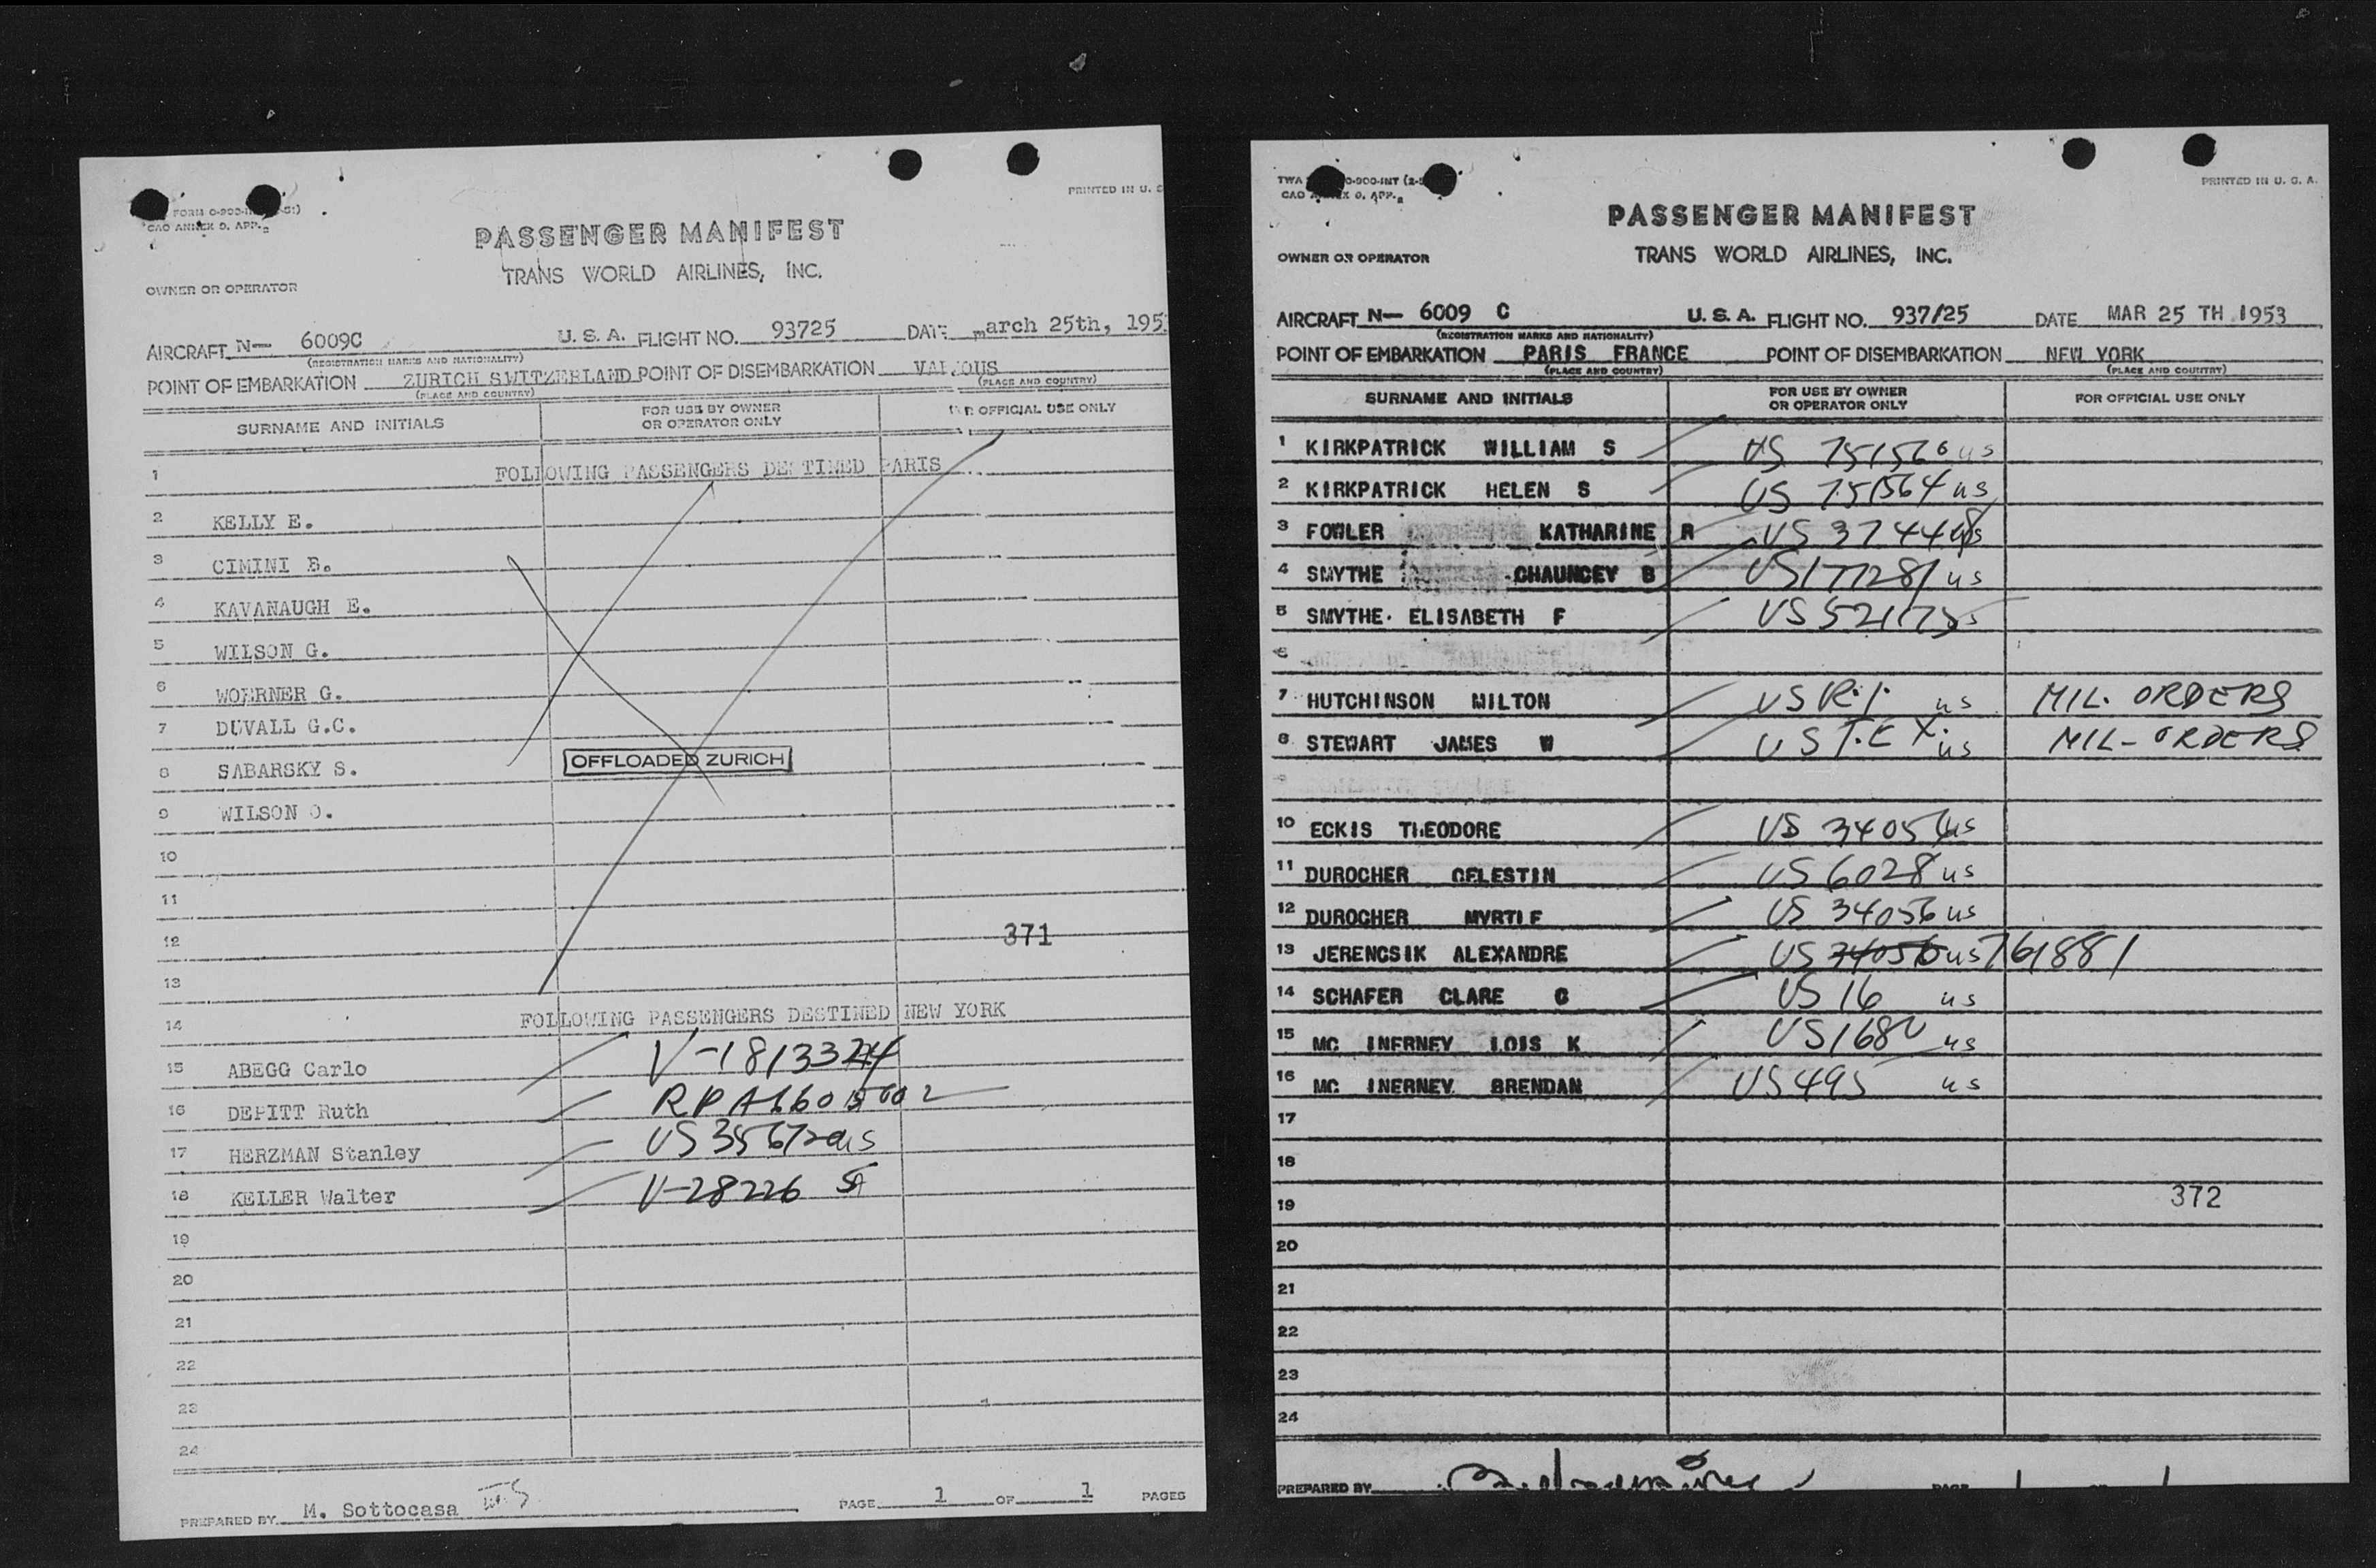 PRINTED IN U. S
FORM
CAO ANNEX 9. APP.
PASSENGER MANIFEST
TRANS WORLD AIRLINES, INC.
OWNER OR OPERATOR
AIRCRAFT N— 6009C U. S. A. FLIGHT NO. 93725 DATE march 25th, 195
(REGISTRATION MARKS AND NATIONALITY)
POINT OF EMBARKATION ZURICH SWITZERLAND POINT OF DISEMBARKATION VARIOUS
(PLACE AND COUNTRY) (PLACE AND COUNTRY)
SURNAME AND INITIALS FOR USE BY OWNER OR OPERATOR ONLY FOR OFFICIAL USE ONLY
1 FOLLOWING PASSENGERS DESTINED PARIS
2 KELLY E.
3 CIMINI B.
4 KAVANAUGH E.
5 WILSON G.
6 WOERNER G.
7 DUVALL G.C.
8 SABARSKY S.
OFFLOADED ZURICH
9 WILSON O.
10
11
12 371
13
14 FOLLOWING PASSENGERS DESTINED NEW YORK
15 ABEGG Carlo
16 DEPITT Ruth
17 HERZMAN Stanley
18 KELLER Walter V-28226
19
20
21
22
23
24
PREPARED BY M. Sottocasa PAGE 1 OF 1 PAGES
TWA
PRINTED IN U. S. A.
PASSENGER MANIFEST
TRANS WORLD AIRLINES, INC.
OWNER OR OPERATOR
AIRCRAFT N— 6009 C U. S. A. FLIGHT NO. 937/25 DATE MAR 25 TH 1953
(REGISTRATION MARKS AND NATIONALITY)
POINT OF EMBARKATION PARIS FRANCE POINT OF DISEMBARKATION NEW YORK
(PLACE AND COUNTRY) (PLACE AND COUNTRY)
SURNAME AND INITIALS FOR USE BY OWNER OR OPERATOR ONLY FOR OFFICIAL USE ONLY
1 KIRKPATRICK WILLIAM S US 751560 us
2 KIRKPATRICK HELEN S US 751564 us
3 FOWLER KATHARINE R US
4 SMYTHE CHAUNCEY B US 177281 us
5 SMYTHE ELISABETH F US
6
7 HUTCHINSON MILTON US R.I. us MIL. ORDERS
8 STEWART JAMES W US TEX. us MIL-ORDERS
9
10 ECKIS THEODORE US 34054 us
11 DUROCHER CELESTIN US 6028 us
12 DUROCHER MYRTLE US 34056 us
13 JERENCSIK ALEXANDRE US 34056 us 761881
14 SCHAFER CLARE G US 16 us
15 MC INERNEY LOIS K US 1680 us
16 MC INERNEY BRENDAN US 495 us
17
18
19 372
20
21
22
23
24
PREPARED BY PAGE 1 OF 1